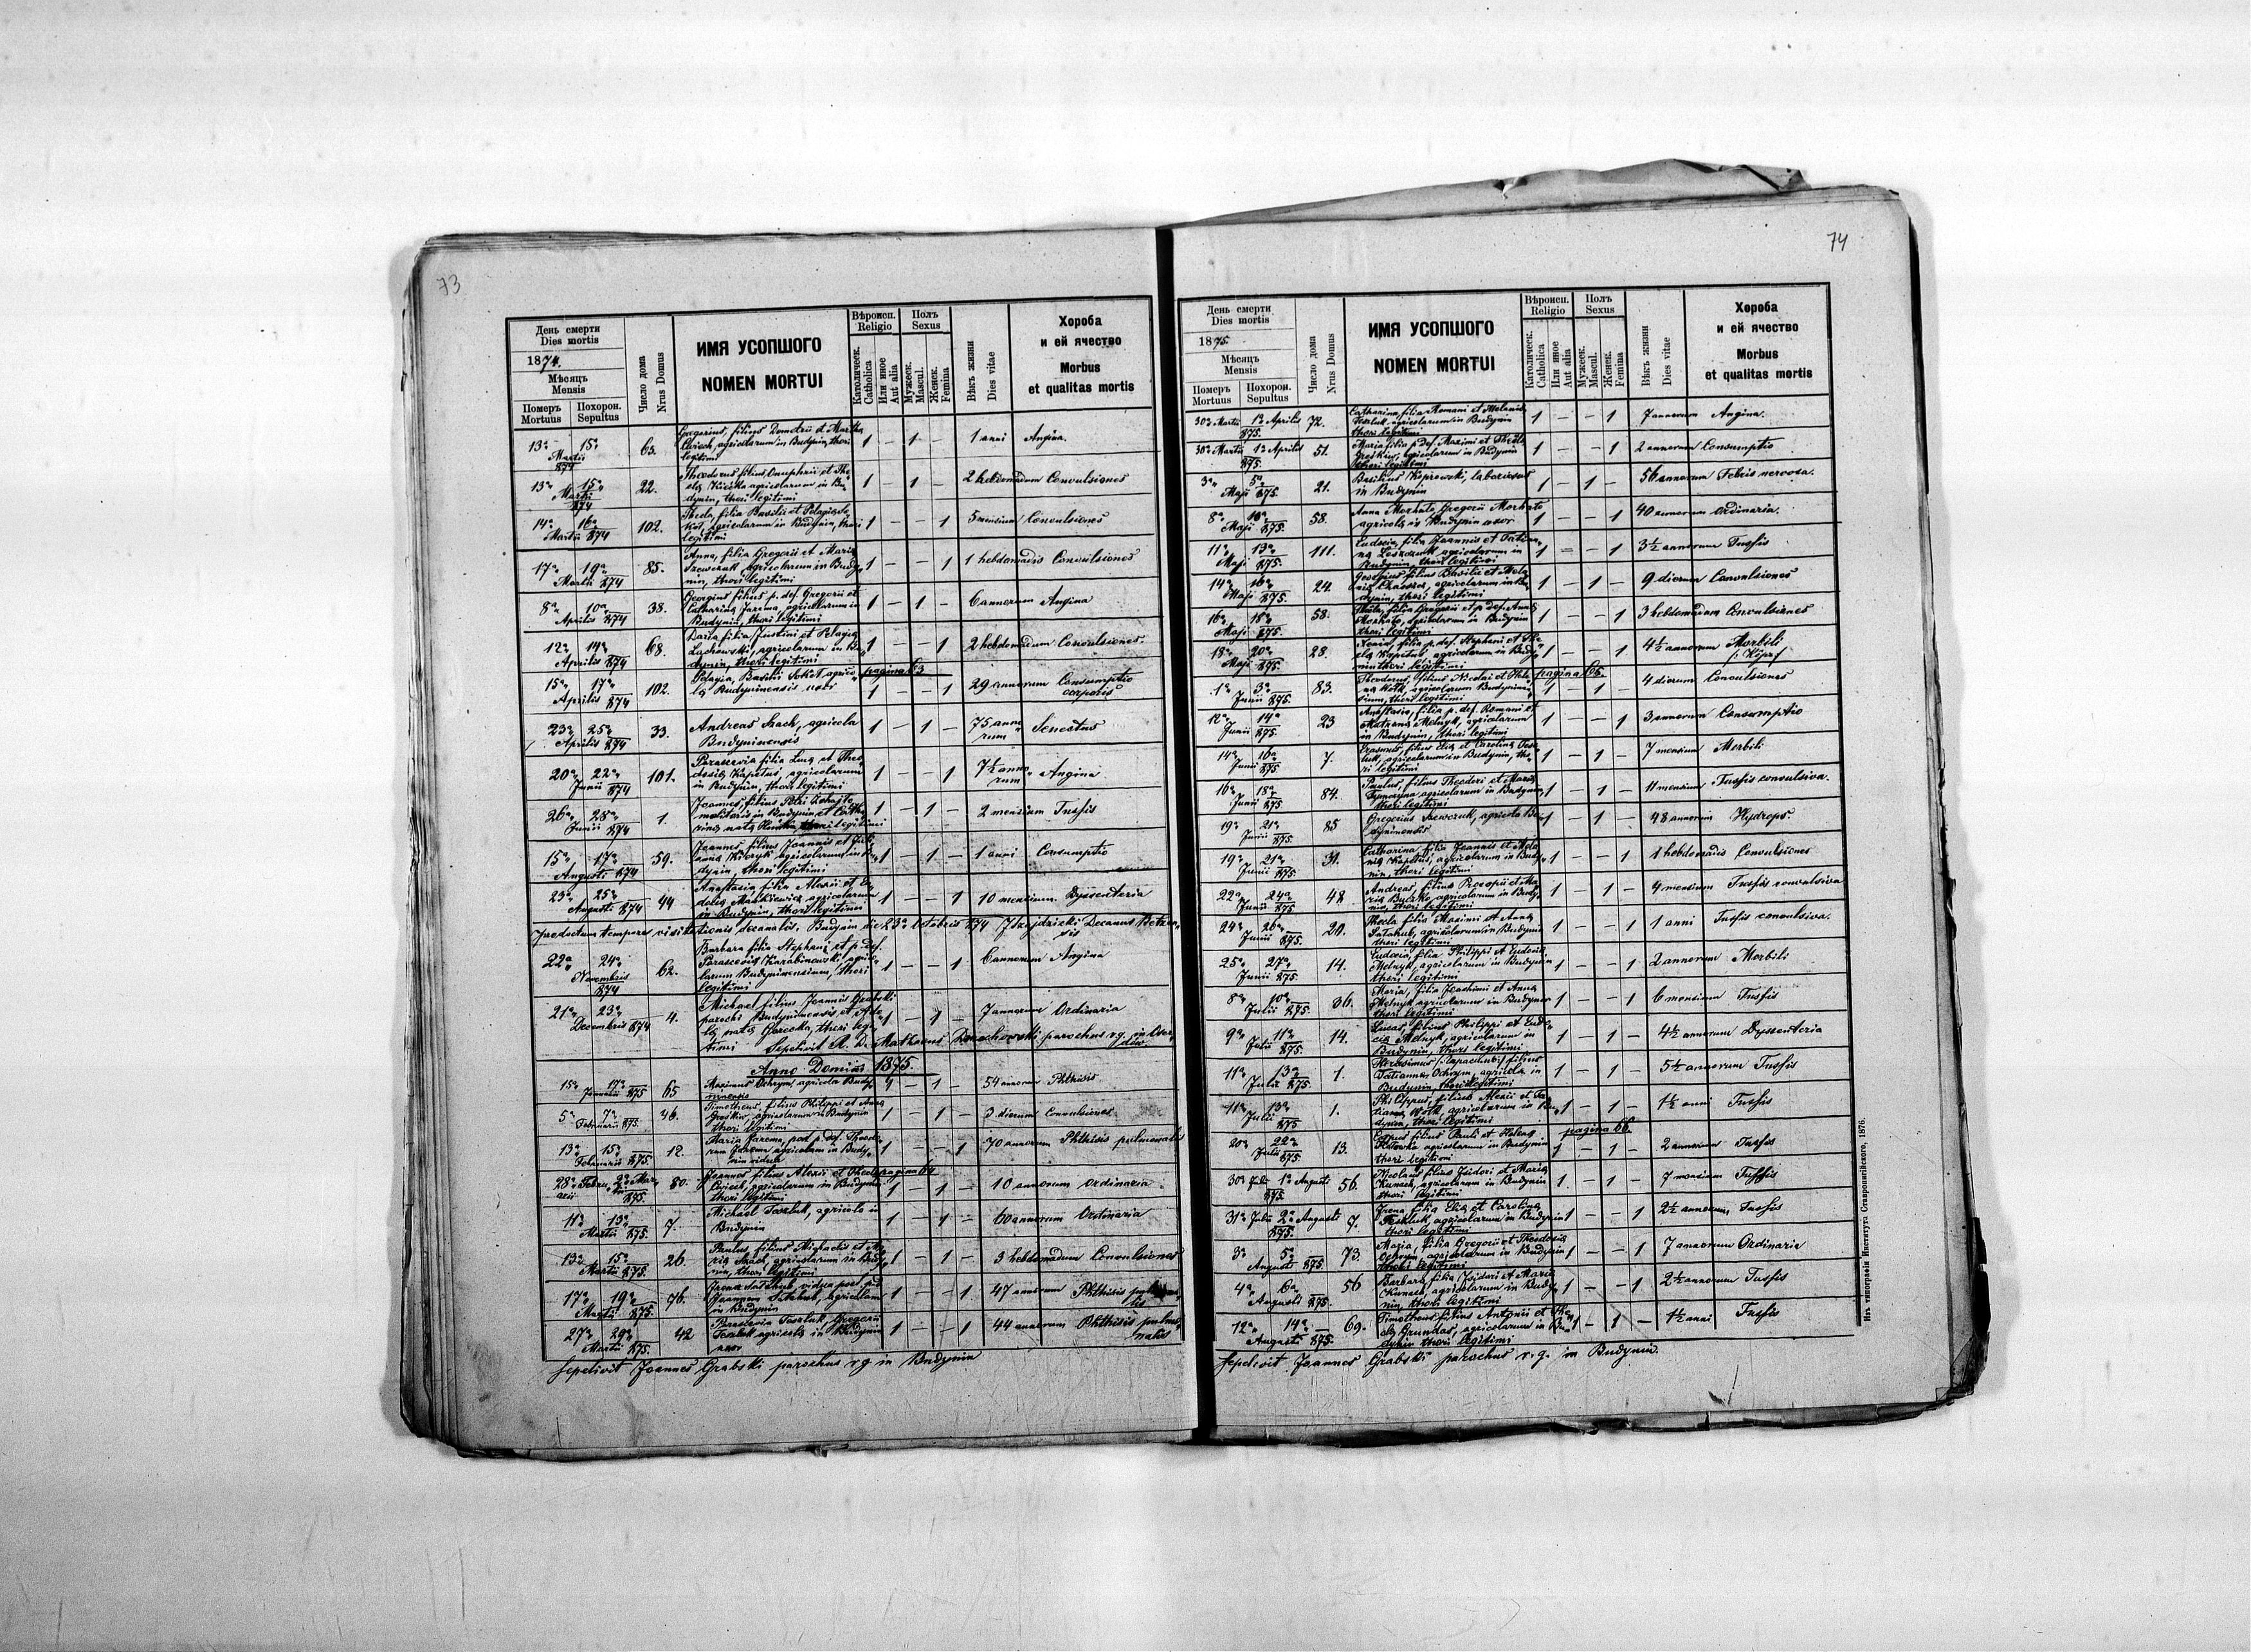 73
День смерти
Dies mortis
1874.
Мѣсяцъ
Mensis
Померъ
Mortuus
Похорон.
Sepultus
Число дома
Nrus Domus
ИМЯ УСОПШОГО
NOMEN MORTUI
Вѣроисп.
Religio
Католическ.
Catholica
Или иное
Aut alia
Полъ
Sexus
Мужеск.
Mascul.
Женск.
Femina
Вѣкъ жизни
Dies vitae
Хороба
и ей ячество
Morbus
et qualitas mortis
13a 15a Martii 874 63. Gregorius, filius Demetrii et Martha
agricolarum in Budynin, thori
legitimi 1 – 1 – 1 anni Angina.
13a 15a Martii 874 22. Theodorus filius Onuphrii et The-
agricolarum in Bu-
dynin, thori legitimi 1 – 1 – 2 hebdomadum Convulsiones
14a 16a Martii 874 102. Thecla, filia Basilii et Pelagia
agricolarum in Budynin, thori
legitimi 1 – – 1 5 mensium Convulsiones
17a 19a Martii 874 85. Anna, filia Gregorii et Maria
Szewczuk, agricolarum in Budy-
nin, thori legitimi 1 – – 1 1 hebdomadis Convulsiones
8a 10a Aprilis 874 38. Georgius filius p. def. Gregorii et
Catharina Jarema, agricolarum in
Budynin, thori legitimi 1 – 1 – 6 annorum Angina
12a 14a Aprilis 874 68. filia Justini et Pelagia
agricolarum in Bu-
dynin, thori legitimi 1 – – 1 2 hebdomadum Convulsiones
pagina 63
15a 17a Aprilis 874 102. Pelagia, Basilii agrico-
la Budyninensis uxor 1 – – 1 29 annorum Consumptio
corporis
23a 25a Aprilis 874 33. Andreas Szach, agricola
Budyninensis 1 – 1 – 75 anno-
rum Senectus
20a 22a Junii 874 101. Parascevia filia Luca et Theo-
dosia Kapetus, agricolarum
in Budynin, thori legitimi 1 – – 1 7½ anno-
rum Angina
26a 28a Junii 874 1. Joannes, filius Petri
in Budynin et Catha-
rina nata thori legitimi 1 – 1 – 2 mensium Tussis
15a 17a Augusti 874 59. Joannes filius Joannis et
agricolarum in Bu-
dynin, thori legitimi 1 – 1 – 1 anni Consumptio
23a 25a Augusti 874 44 Anastasia, filia Alexii et Eu-
docia agricolarum
in Budynin, thori legitimi 1 – – 1 10 mensium. Dyssenteria
Productum tempore visitationis decanalis. Budynin die 23a Octobris 874 Decanus
22a 24a Novembris 874 62. Barbara filia Stephani et p. def.
Parascevia Karabinowski agrico-
larum Budyninensium, thori
legitimi 1 – – 1 6 annorum Angina
21a 23a Decembris 874 4. Michael filius Joannis Grabski
parochi Budyninensis et
nata thori legi-
timi 1 – 1 – 7 annorum Ordinaria
Sepelivit R. D. Mathaeus parochus r.g. in
Anno Domini 1875.
15a 17a Januarii 875 65 Maximus Ochrym, agricola Budy-
ninensis 1 – 1 – 54 annorum Phthisis
5a 7a Februarii 875. 46. Timotheus, filius Philippi et Anna
agricolarum in Budynin
thori legitimi 1 – 1 – 3 dierum Convulsiones
13a 15a Februarii 875. 12. Maria Jarema, post p. def. Theodo-
rum Jarema agricolam in Budy-
nin vidua 1 – – 1 70 annorum Phthisis pulmonalis
pagina 64
28a Febru-
arii 2a Mar-
tii 875. 80. Joannes filius Alexii et Thecla
agricolarum in Budynin
thori legitimi 1 1 – 10 annorum Ordinaria
11a 13a Martii 875. 7. Michael Toszluk, agricola in
Budynin 1 – 1 – 60 annorum Ordinaria
13a 15a Martii 875. 26. Paulus filius Michaelis et Ma-
ria Szach, agricolarum in Budy-
nin, thori legitimi 1 – 1 – 3 hebdomadum Convulsiones
17a 19a Martii 875. 76. vidua post p. def.
Joannem agricolam
in Budynin 1 – – 1 47 annorum Phthisis pulmona-
lis
27a 29a Martii 875. 42 Parascevia Toszluk, Gregorii
Toszluk agricola in Budynin
uxor 1 – – 1 44 annorum Phthisis pulmo-
nalis
Sepelivit Joannes Grabski parochus r.g in Budynin
74
День смерти
Dies mortis
1875.
Мѣсяцъ
Mensis
Померъ
Mortuus
Похорон.
Sepultus
Число дома
Nrus Domus
ИМЯ УСОПШОГО
NOMEN MORTUI
Вѣроисп.
Religio
Католическ.
Catholica
Или иное
Aut alia
Полъ
Sexus
Мужеск.
Mascul.
Женск.
Femina
Вѣкъ жизни
Dies vitae
Хороба
и ей ячество
Morbus
et qualitas mortis
30a Martii 1a Aprilis 875. 72. Catharina, filia Romani et Melania
Toszluk, agricolarum in Budynin
thori legitimi 1 – – 1 7 annorum Angina.
30a Martii 1a Aprilis 875. 51. Maria filia p. def. Maximi et Thecla
agricolarum in Budynin
thori legitimi 1 – – 1 2 annorum Consumptio
3a 5a Maji 875. 21. Basilius laboriosus
in Budynin 1 – 1 – 56 annorum Febris nervosa.
8a 10a Maji 875. 58. Anna Mochnto Gregorii
agricola in Budynin uxor 1 – – 1 40 annorum Ordinaria.
11a 13a Maji 875. 111. Eudocia, filia Joannis et Tatian-
na agricolarum in
Budynin, thori legitimi 1 – – 1 3½ annorum Tussis
14a 16a Maji 875. 24. Georgius filius Basilii et Mela-
nia agricolarum in Bu-
dynin, thori legitimi 1 – 1 – 9 dierum Convulsiones
16a 18a Maji 875. 58. Thecla, filia Gregorii et p. def. Anna
agricolarum in Budynin
thori legitimi 1 – – 1 3 hebdomadum Convulsiones
18a 20a Maji 875. 28. Xenia, filia p. def. Stephani et The-
cla Kapetus agricolarum in Budy-
nin thori legitimi 1 – – 1 4½ annorum Morbili
pagina 65.
1a 3a Junii 875. 83. Theodorus, filius Nicolai et
Wołk, agricolarum Budyninen-
sium, thori legitimi 1 – 1 – 4 dierum Convulsiones
12a 14a Junii 875. 23 Anastasia, filia p. def. Romani et
Matrona Melnyk, agricolarum
in Budynin, thori legitimi 1 – – 1 3 annorum Consumptio
14a 16a Junii 875 7. Erasmus, filius Elia et Carolina Tosz-
luk, agricolarum in Budynin, tho-
ri legitimi 1 – 1 – 7 mensium Morbili
16a 18a Junii 875 84. Paulus, filius Theodori et Maria
agricolarum in Budynin
thori legitimi 1 – 1 – 11 mensium Tussis convulsiva.
19a 21a Junii 875. 85 Gregorius Szewczuk, agricola Bu-
dyninensis 1 – 1 – 48 annorum Hydrops.
19a 21a Junii 875 31. Catharina filia Joannis et Mela-
nia Kapetus, agricolarum in Budy-
nin, thori legitimi 1 – – 1 1 hebdomadis Convulsiones
22a 24a Junii 875 48 Andreas, filius Procopii et Ma-
ria agricolarum in Budy-
nin, thori legitimi 1 – 1 – 9 mensium Tussis convulsiva
24a 26a Junii 875. 20. Thecla filia Maximi et Anna
agricolarum in Budynin
thori legitimi 1 – – 1 1 anni Tussis convulsiva.
25a 27a Junii 875. 14. Eudocia, filia Philippi et Eudocia
Melnyk, agricolarum in Budynin
thori legitimi 1 – – 1 2 annorum Morbili
8a 10a Julii 875. 36. Maria, filia Joachimi et Anna
Melnyk agricolarum in Budynin
thori legitimi 1 – – 1 6 mensium Tussis
9a 11a Julii 875. 14. Lucas, filius Philippi et Eudo-
cia Melnyk, agricolarum in
Budynin, thori legitimi 1 – 1 – 4½ annorum Dyssenteria
11a 13a Julii 875. 1. filius
Tatianna Ochrym, agricola in
Budynin, thori illegitimi 1 – 1 – 5½ annorum Tussis
11a 13a Julii 875 1. Philippus, filius Alexii et Ta-
tianna Wołk agricolarum in Bu-
dynin, thori legitimi 1 – 1 – 1½ anni Tussis
pagina 66.
20a 22a Julii 875. 13. filius Pauli et Helena
agricolarum in Budynin
thori legitimi 1 – 1 – 2 annorum Tussis
30a Julii 1a Augusti 875. 56. Nicolaus filius Isidori et Maria
Kunach, agricolarum in Budynin
thori legitimi 1 – 1 – 7 mensium Tussis
31a Julii 2a Augusti 875. 7. Irena filia Elia et Carolina
Toszluk agricolarum in Budynin
thori legitimi 1 – – 1 2½ annorum Tussis
3a 5a Augusti 875. 73 Maria, filia Gregorii et Theodosia
Ochrym, agricolarum in Budynin
thori legitimi 1 – – 1 7 annorum Ordinaria
4a 6a Augusti 875. 56 Barbara, filia Isidori et Maria
Kunach, agricolarum in Budy-
nin, thori legitimi 1 – – 1 2½ annorum Tussis
12a 14a Augusti 875. 69. Timotheus filius Antonii et The-
cla Grundas, agricolarum in Bu-
dynin thori legitimi 1 – 1 – 1½ anni Tussis
Sepelivit Joannes Grabski parochus r.g. in Budynin.
Изъ типографіи Института Ставропигійского, 1876.